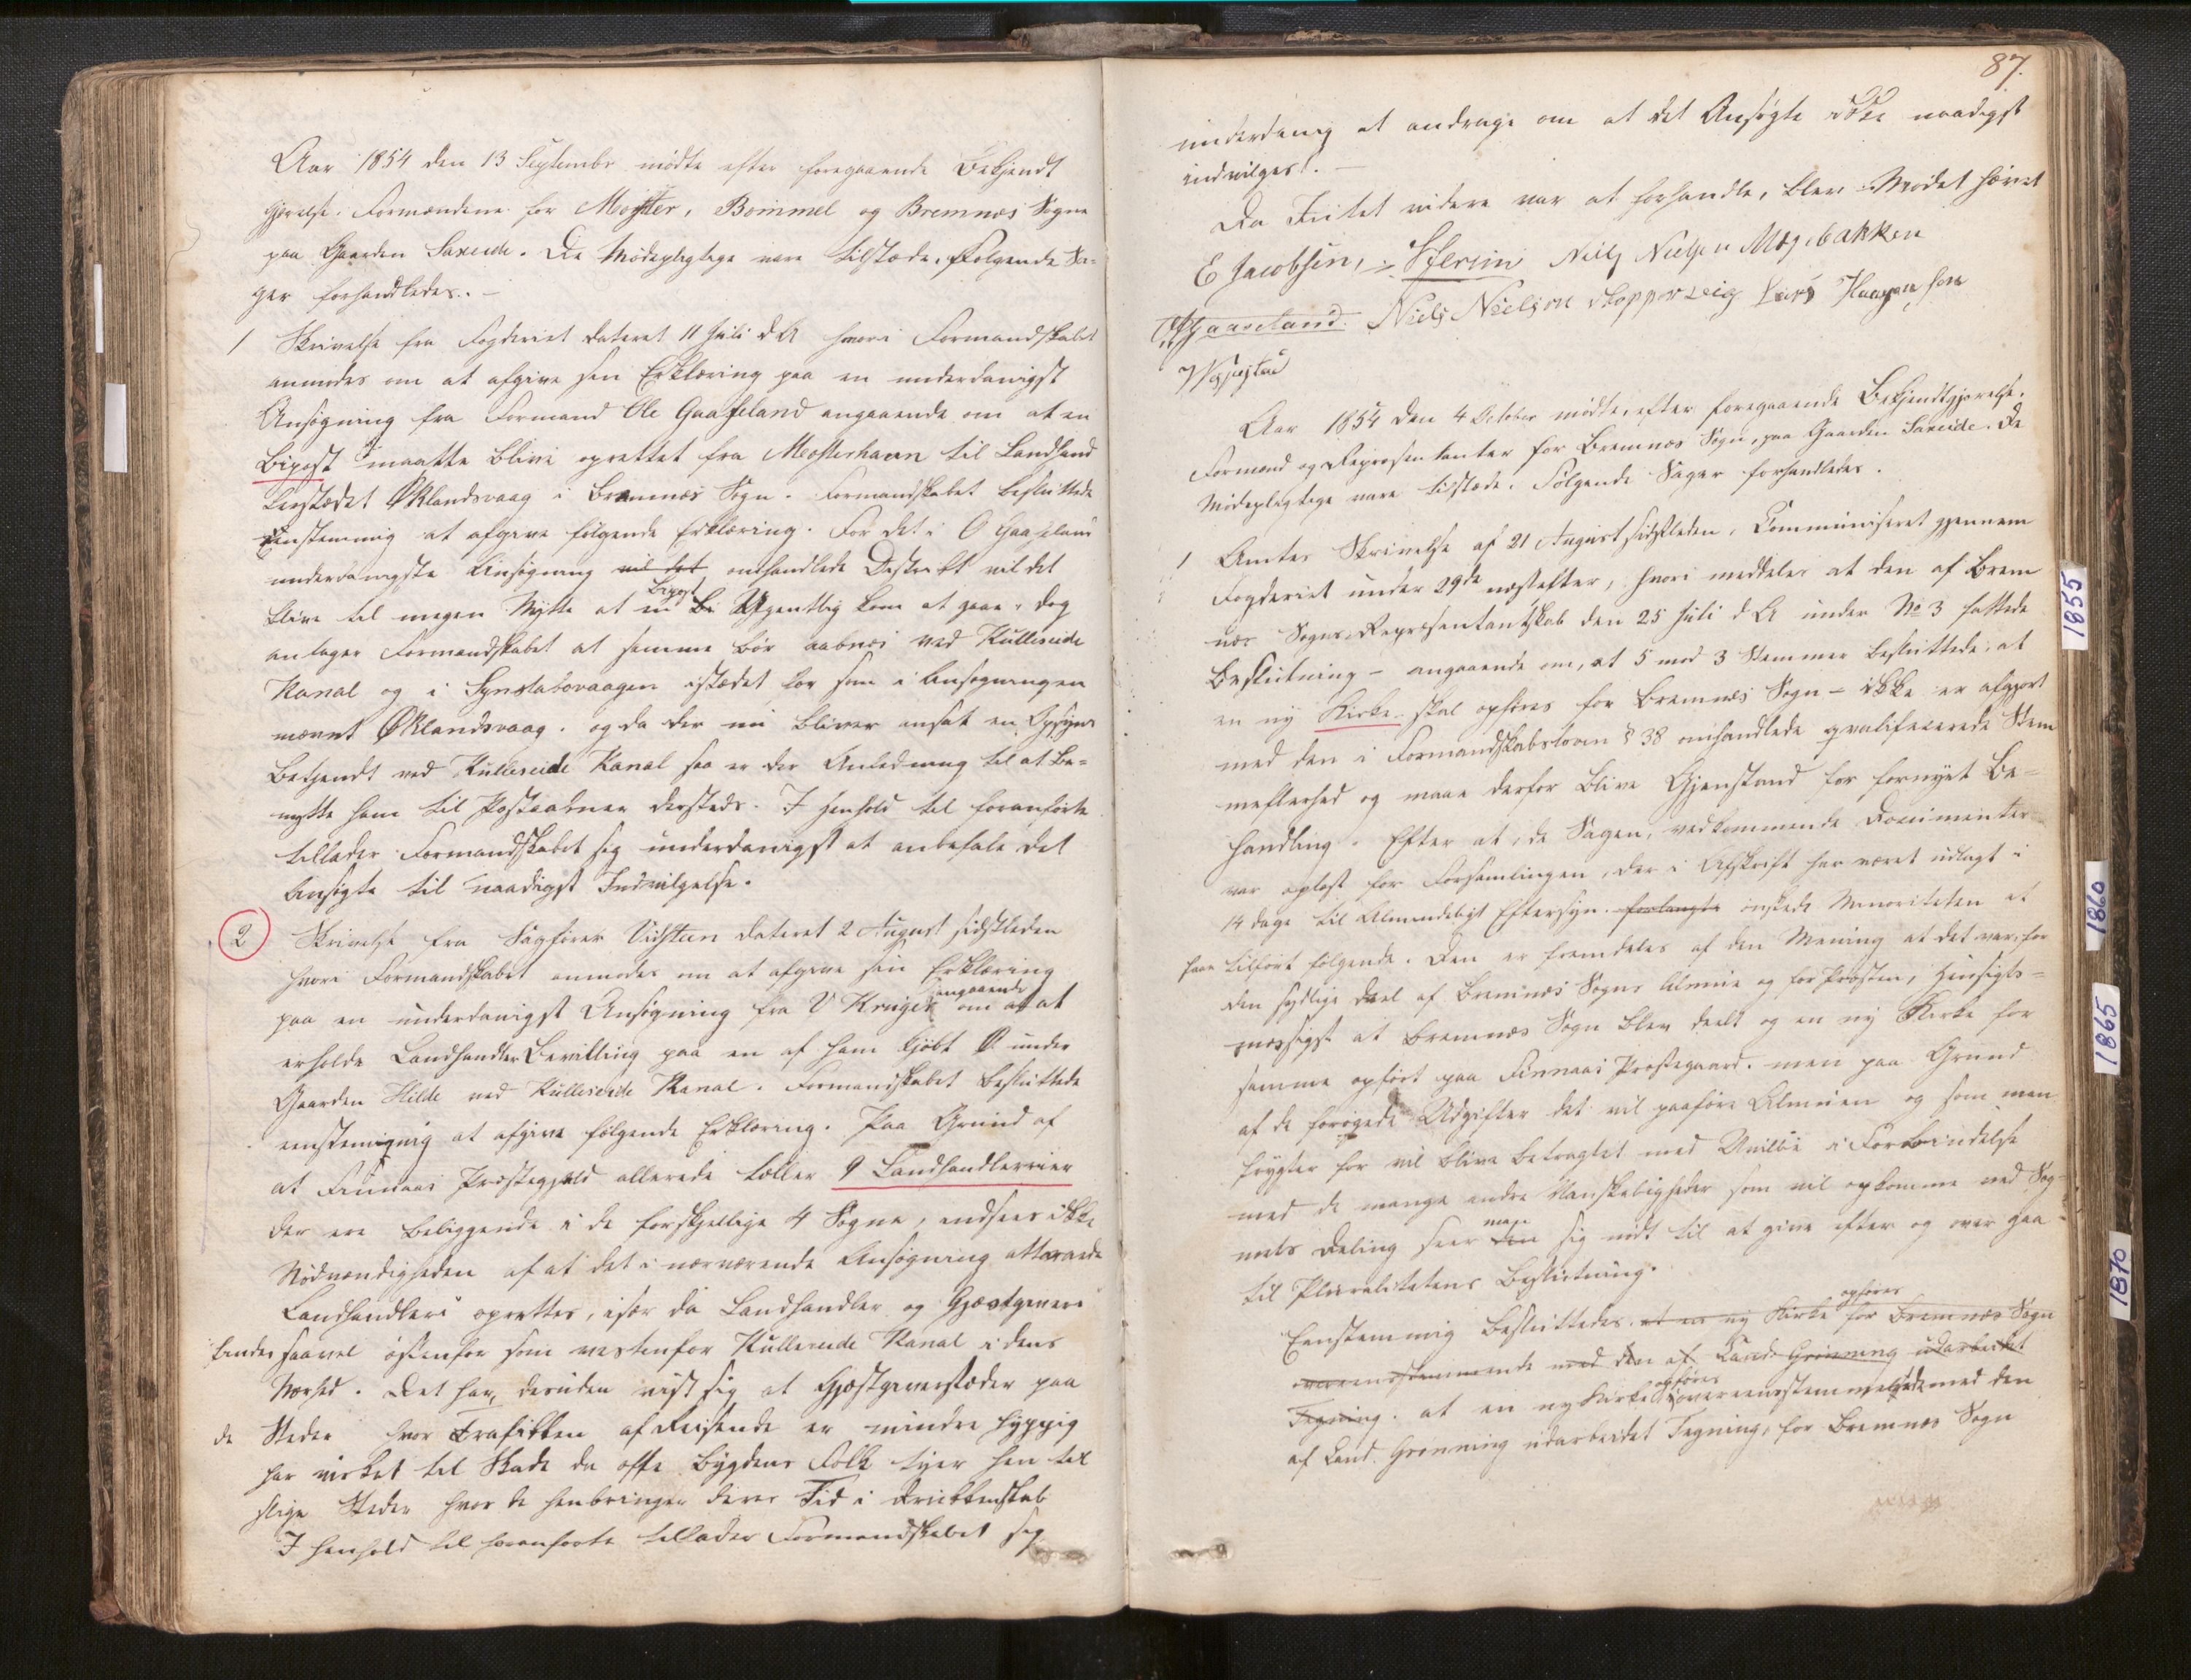 Aar 1854 den 13 Septembr mödte efter foregaaende Bekjendt
gjörelse. Formændene for Moster, Bömmel og Bremnæs Sogne
paa Gaarden Saxeide. De Mödepligtige vare tilstæde. Følgende Sa-
ger forhandledes. –
1 Skrivelse fra Fogderiet dateret 11 Juli d A hvori Formandskabet
anmodes om at afgive sin Erklæring paa en underdanigst
Ansögning fra Formand Ole Gaaseland angaaende om at en
Bipost maatte blive oprettet fra Mosterhavn til Landhand
lerstædet Øklandsvaag i Bremnæs Sogn. Formandskabet besluttede
Eenstemmig at afgive følgende Erklæring. For det i O Gaaseland
underdanigste Ansögning vil det omhandlede Destrikt vil det
blive til megen Nytte at en Bipost Ugentlig kom at gaae, dog
antager Formandskabet at samme bör aabnes ved Kulleseide
Kanal og i Synstabövaagen istædet for som i Ansögningen
nævnt Øklandsvaag. og da der nu bliver ansat en Opsyns
Betjendt ved Kulleseide Kanal saa er der Anledning til at be-
nytte ham til Postaabner dersteds. I Henhold til foranförte
tillader Formandskabet sig underdanigst at anbefale det
Ansögte til naadigst Indvilgelse.
2 Skrivelse fra Sagförer dateret 2 August sidstleden
hvori Formandskabet anmodes om at afgive sin Erklæring
angaaende
paa en underdanigst Ansögning fra V Krüger om at
erholde Landhandler Bevilling paa en af ham kjöbt under
Gaarden Hilde ved Kulleseide Kanal. Formandskabet besluttede
eenstemmig at afgive følgende Erklæring. Paa Grund af
at Finnaas Præstegjæld allerede tæller 9 Landhandlerier
der ere beliggende i de forskjellige 4 Sogne, indsees ikke
Nödvændigheden af at det i nærværende Ansögning attraaede
Landhandleri oprettes, især da Landhandler og Gjæstgiveri
findes saavel östenfor som vestenfor Kulleseide Kanal i dens
Nærhed. Det har desuden vist sig at Gjæstgiverstæder paa
de Steder hvor Trafikken af Reisende er mindre hyppig
har virket til Skade da ofte Bygdens Folk tyer hen til
slige Steder hvor de henbringer deres Tid i Drukkenskab
I Henhold til foranförte tillader Formandskabet sig
87.
underdanig at andrage om at det Ansögte ikke naadigst
indvilges. –
Da Intet videre var at forhandle, blev Mödet hævet
E Jacobsen, Niels Nielsen Mæhebakken
O Gaaseland. Niels Nielsen Koppervig Lars Haagensen
Aar 1854 den 4 October mödte, efter foregaaende Bekjendtgjørelse.
Formænd og Repræsentanter for Bremnæs Sogn, paa Gaarden Saxeide. De
Mödepligtige vare tilstæde. Følgende Sager forhandledes.
1 Amtes Skrivelse af 21 August sidstleden, Communiseret gjennem
Fogderiet under 29de næstefter, hvori meddeles at den af Brem
næs Sogns Repræsentantskab den 25 Juli d A under No 3 fattede
Beslutning – angaaende om, at 5 mod 3 Stemmer besluttede, at
en ny Kirke skal opföres for Bremnæs Sogn – ikke er afgjort
med den i Formandskabsloven § 38 omhandlede qvalificerede Stem
mefleerhed og maae derfor blive Gjenstand for fornyet Be-
handling. Efter at, de Sagen, vedkommende Documenter
var oplæst for Forsamlingen, der i Afskrift har været udlagt i
14 dage til Almindeligt Eftersyn. forlangte önskede Minoriteten at
faae tilfört følgende. Den er fremdeles af den Mening at det var, for
den sydlige Deel af Bremnæs Sogns Almue og for Præsten, Hensigts-
mæssigst at Bremnæs Sogn blev deelt og en ny Kirke for
samme opfört paa Finnaas Præstegaard. men paa Grund
af de forögede Udgifter det vil paaföre Almuen og som man
frygter for vil blive betragtet med Uvillie i Forbindelse
med de mange andre Vanskeligheder som vil opkomme ved Sog-
man
nets Deling seer den sig nödt til at give efter og over gaa
til Pluralitetens Beslutning.
opföres
Eenstemmig besluttedes at en ny Kirke for Bremnæs Sogn
overeensstemmende med den af Land. Grönning udarbeidet
opföres
Tegning. at en ny Kirke overeensstemmelse med den
af Land. Grönning udarbeidet Tegning, for Bremnæs Sogn
1855
1860
1865
1870